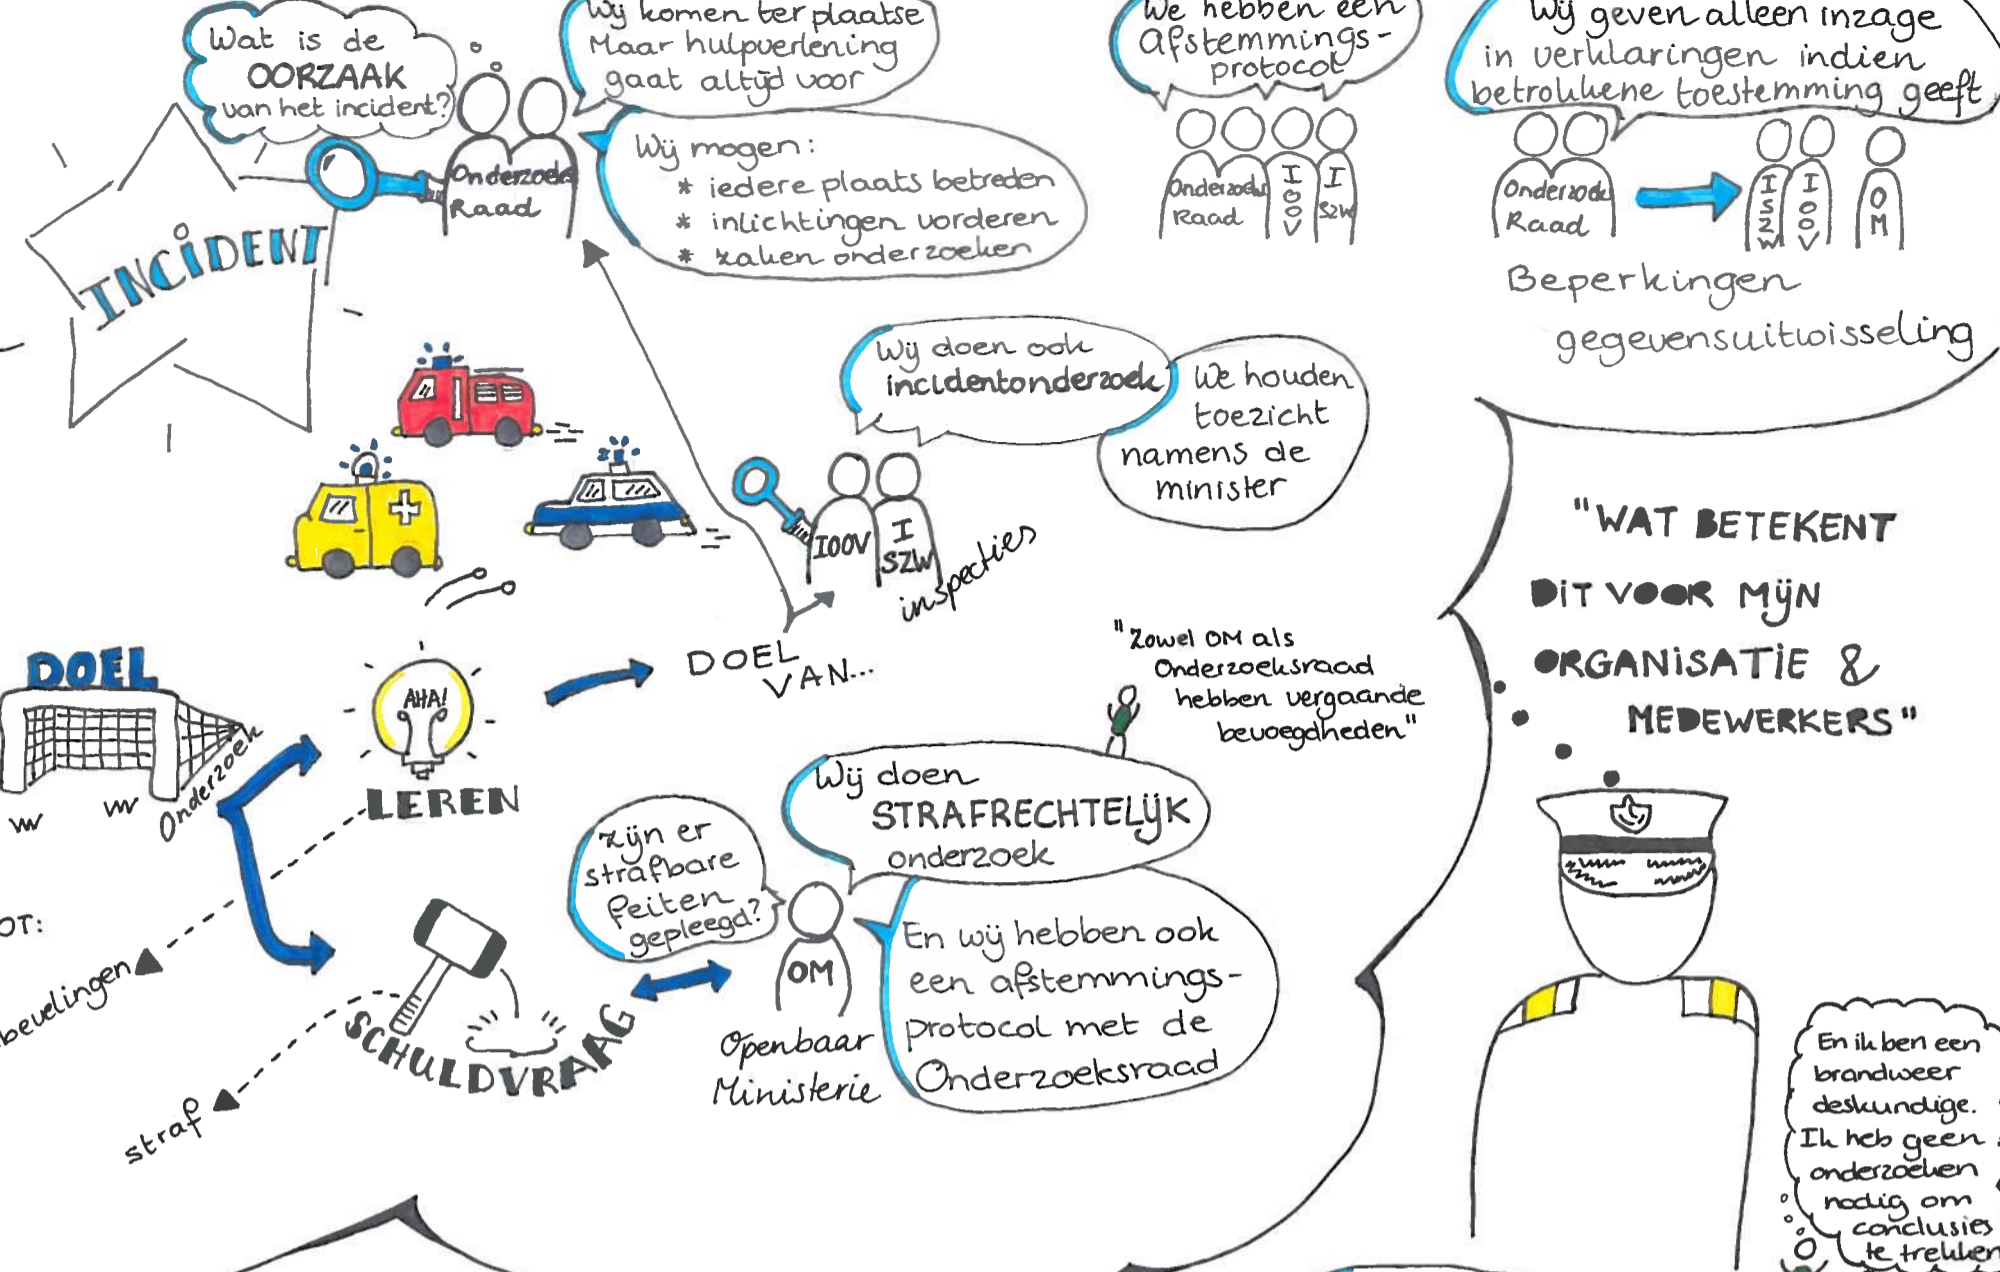 Wat is de
OORZAAK
van het incident?
Wij komen ter plaatse
Maar hulpverlening
gaat altijd voor
Wij mogen:
* iedere plaats betreden
* inlichtingen vorderen
* zaken onderzoeken
Onderzoeks
Raad
INCIDENT
We hebben een
Afstemmings-
protocol
Onderzoeks
Raad
IOOV
I
SZW
Wij geven alleen inzage
in verklaringen indien
betrokkene toestemming geeft
Onderzoek
Raad
ISZW
IOOV
OM
Beperkingen
gegevensuitwisseling
Wij doen ook
incidentonderzoek
We houden
toezicht
namens de
minister
IOOV
I
SZW
inspecties
DOEL
VAN...
DOEL
Onderzoek
AHA!
LEREN
"Zowel OM als
Onderzoeksraad
hebben vergaande
bevoegdheden"
Wij doen
STRAFRECHTELIJK
onderzoek
zijn er
strafbare
feiten
gepleegd?
OM
Openbaar
Ministerie
En wij hebben ook
een afstemmings-
protocol met de
Onderzoeksraad
SCHULDVRAAG
OT:
bevelingen
straf
"WAT BETEKENT
DIT VOOR MIJN
ORGANISATIE &
MEDEWERKERS"
En ik ben een
brandweer
deskundige.
Ik heb geen
onderzoeken
nodig om
conclusies
te trekken